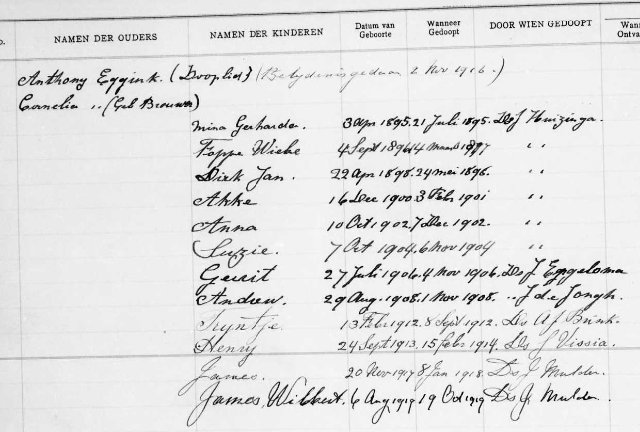 o. NAMEN DER OUDERS NAMEN DER KINDEREN Datum van Geboorte Wanneer Gedoopt DOOR WIEN GEDOOPT Wann Ontva
Anthony Eggink. (Dooplid) (Belydenis gedaan 2 Nov 1916.)
Cornelia ,, (Geb Brouwer)
Mina Gerharda. 3 Apr 1895. 21 Juli 1895. Ds J Huizinga.
Foppe Wiebe 4 Sept 1896. 14 1897 ,,
Dirk Jan. 22 Apr 1898. 24 mei 1898. ,,
Akke 16 Dec 1900. 3 Febr 1901 ,,
Anna 10 Oct 1902. 7 Dec 1902. ,,
Suzie. 7 Oct 1904. 6 Nov 1904 ,,
Gerrit 27 Juli 1906. 4 Nov 1906. Ds J
Andrew. 29 Aug. 1908. 1 Nov 1908. ,, J de Jongh.
Tryntje. 13 Febr 1912. 8 Sept 1912. Ds A J Brink.
Henry 24 Sept 1913. 15 Febr 1914. Ds J Vissia.
James. 20 Nov 1917 8 Jan 1918. Ds J Mulder.
James, Wibbert. 6 Aug 1919 19 Oct 1919 Ds J, Mulder.